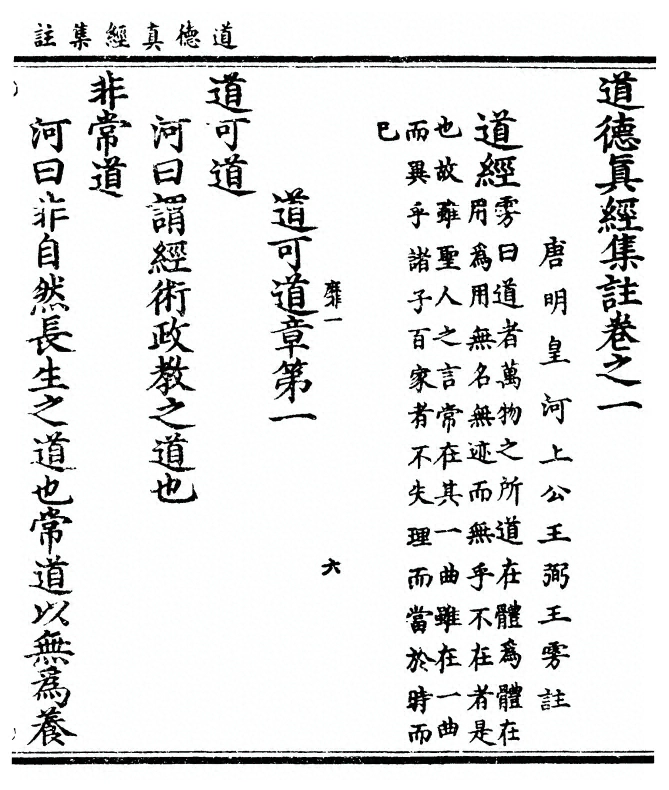 道德真經集註
道德眞經集註卷之一
唐明皇河上公王弼王雱註
道經
雱曰道者萬物之所道在體爲體在
用爲用無名無迹而無乎不在者是
也故雖聖人之言常在其一曲雖在一曲
而異乎諸子百家者不失理而當於時而
已
道可道章第一
靡一
六
道可道
河曰謂經術政教之道也
非常道
河曰非自然長生之道也常道以無爲養